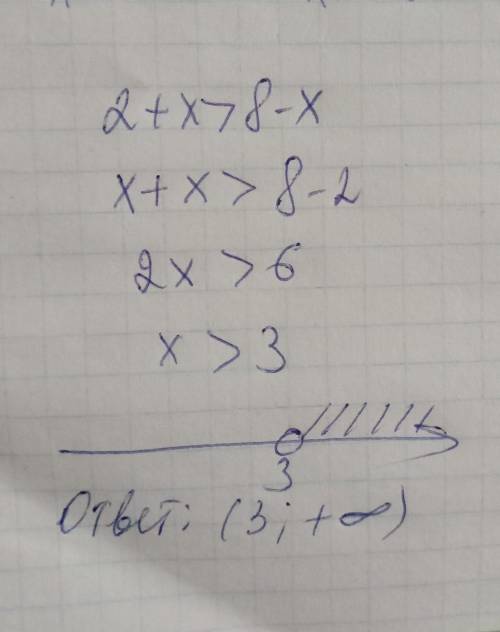 2+x>8-x
x+x>8-2
2x>6
x>3
3
Ответ: (3; +∞)